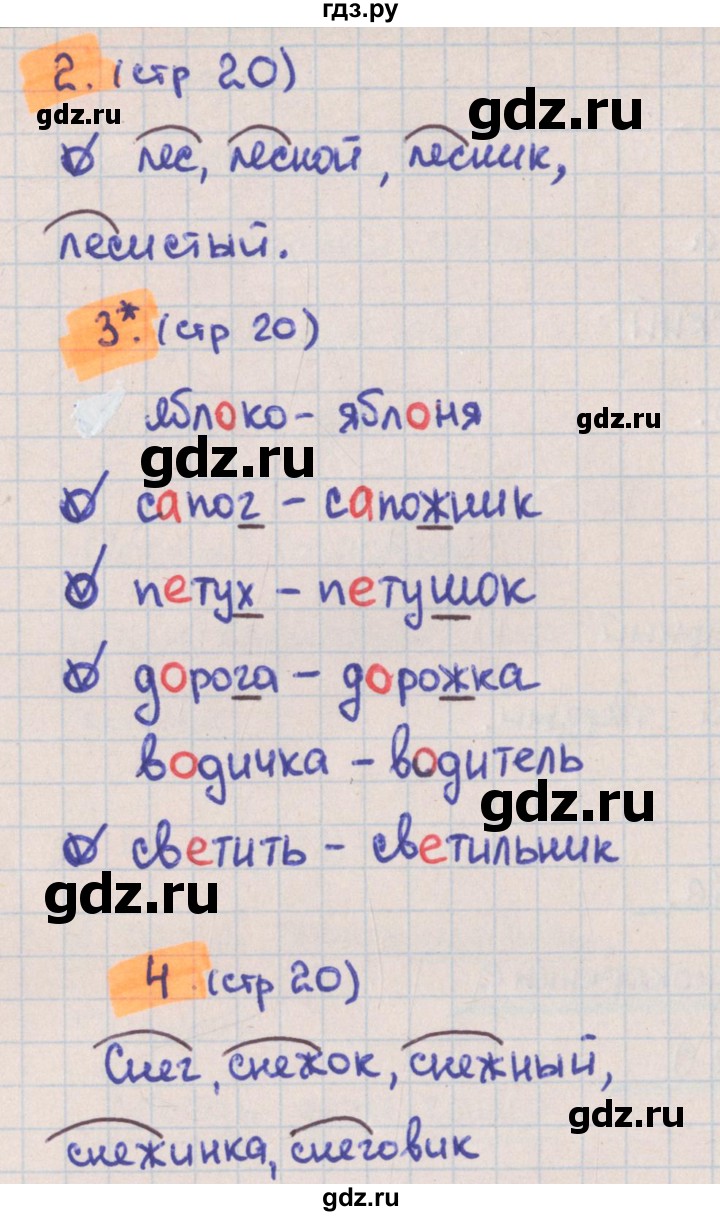 гдз.ру
2. (стр 20)
gdz.ru
лес, лесной, лесник,
лесистый.
3*. (стр 20)
яблоко - яблоня
gdz.ru
gdz.ru
сапог - сапожник
петух - петушок
дорога - дорожка
водичка - водитель
gdz.ru
светить - светильник
gdz.ru
4. (стр 20)
Снег, снежок, снежный,
gdz.ru
снежинка, снеговик
gdz.ru